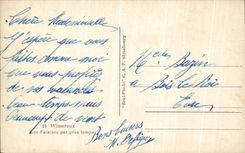 Chère Mademoiselle
J'espère que vous
faites comme moi
que vous profitez
de vos vacances
beau temps mais
beaucoup de vent
15 Wimereux
Les Falaises par gros temps
"Real-Photo" C. A. P. Strasbourg
à Bois le Roi
Eure
Bons baisers